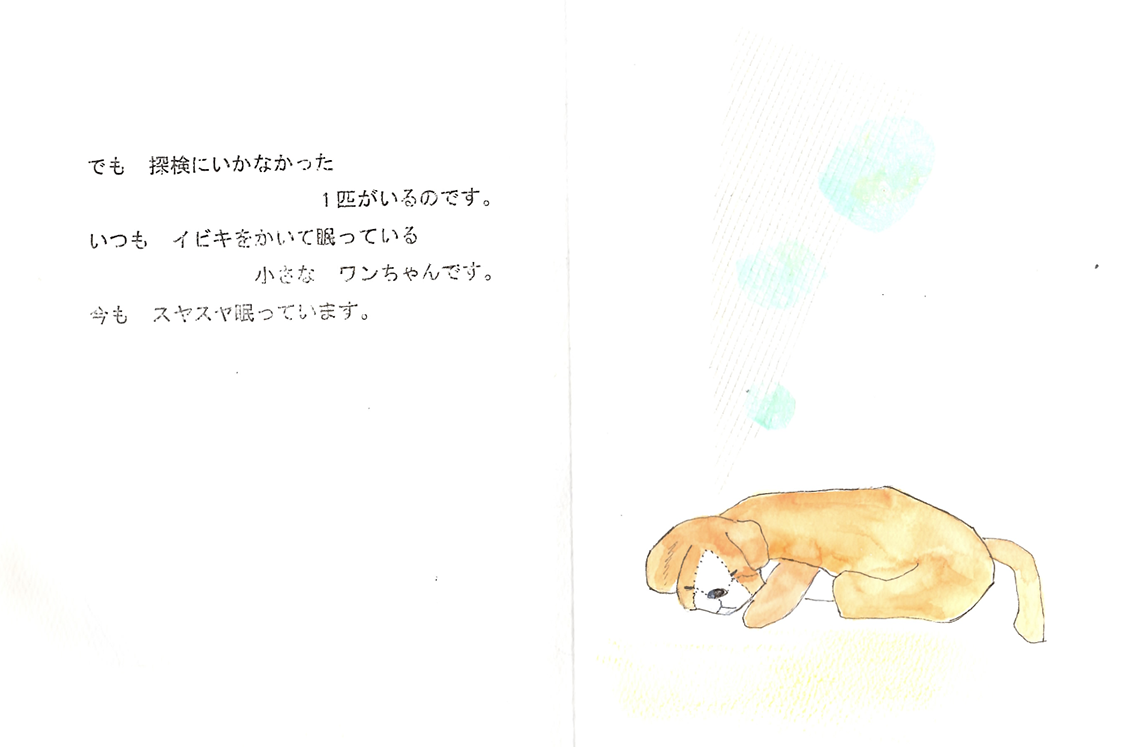 でも　探検にいかなかった
1匹がいるのです。
いつも　イビキをかいて眠っている
小さな　ワンちゃんです。
今も　スヤスヤ眠っています。